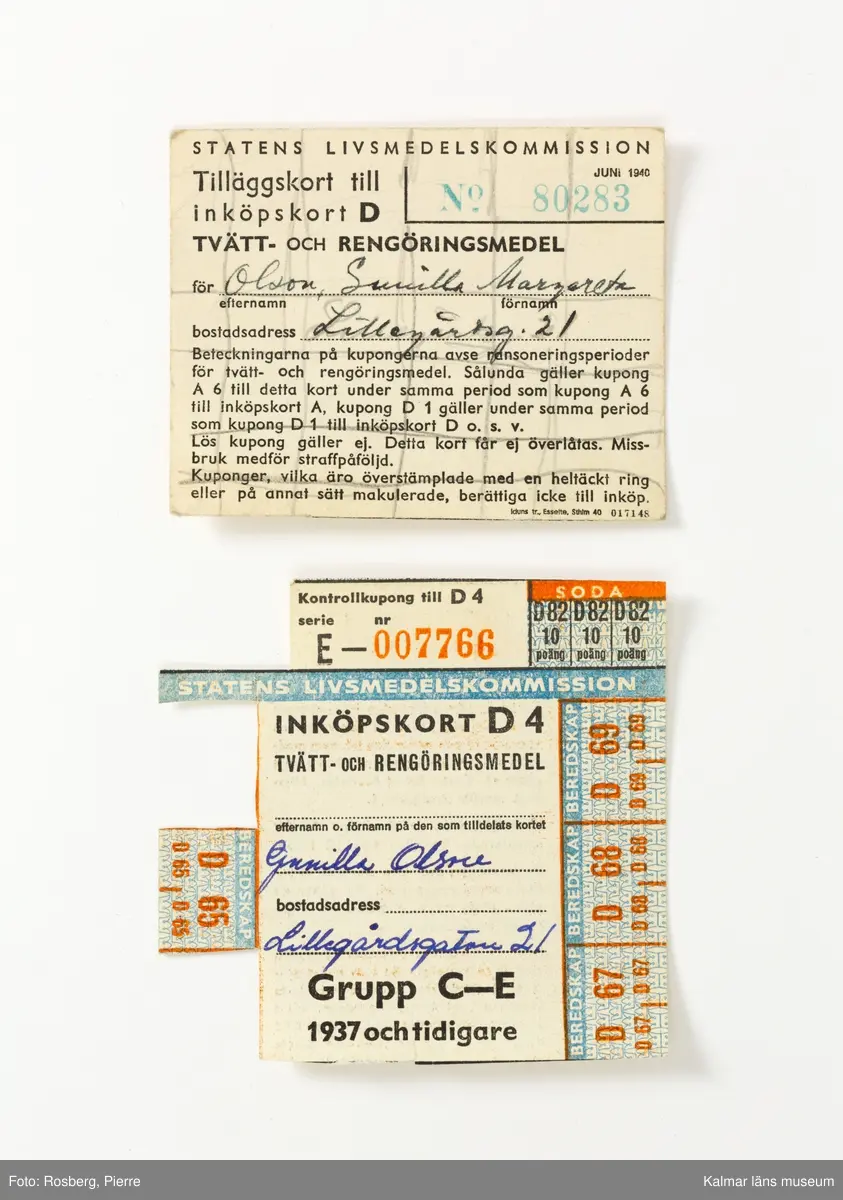 STATENS LIVSMEDELSKOMMISSION
JUNI 1940
Tilläggskort till
inköpskort D
No 80283
TVÄTT- OCH RENGÖRINGSMEDEL
för Olson, Gunilla Margareta
efternamn förnamn
bostadsadress Lillegårdsg. 21
Beteckningarna på kupongerna avse ransoneringsperioder
för tvätt- och rengöringsmedel. Sålunda gäller kupong
A 6 till detta kort under samma period som kupong A 6
till inköpskort A, kupong D 1 gäller under samma period
som kupong D 1 till inköpskort D o. s. v.
Lös kupong gäller ej. Detta kort får ej överlåtas. Miss-
bruk medför straffpåföljd.
Kuponger, vilka äro överstämplade med en heltäckt ring
eller på annat sätt makulerade, berättiga icke till inköp.
Iduns tr., Esselte, Sthlm 40 017148
Kontrollkupong till D 4
serie nr
E — 007766
SODA
D82 D82 D82
10 10 10
poäng poäng poäng
STATENS LIVSMEDELSKOMMISSION
INKÖPSKORT D 4
TVÄTT- OCH RENGÖRINGSMEDEL
efternamn o. förnamn på den som tilldelats kortet
Gunilla Olson
bostadsadress
Lillegårdsgatan 21
Grupp C—E
1937 och tidigare
BEREDSKAP
D 69
D 69 D 69
BEREDSKAP
D 68
D 68 D 68
BEREDSKAP
D 67
D 67 D 67
BEREDSKAP
D 65
D 65 D 65
Foto: Rosberg, Pierre
Kalmar läns museum